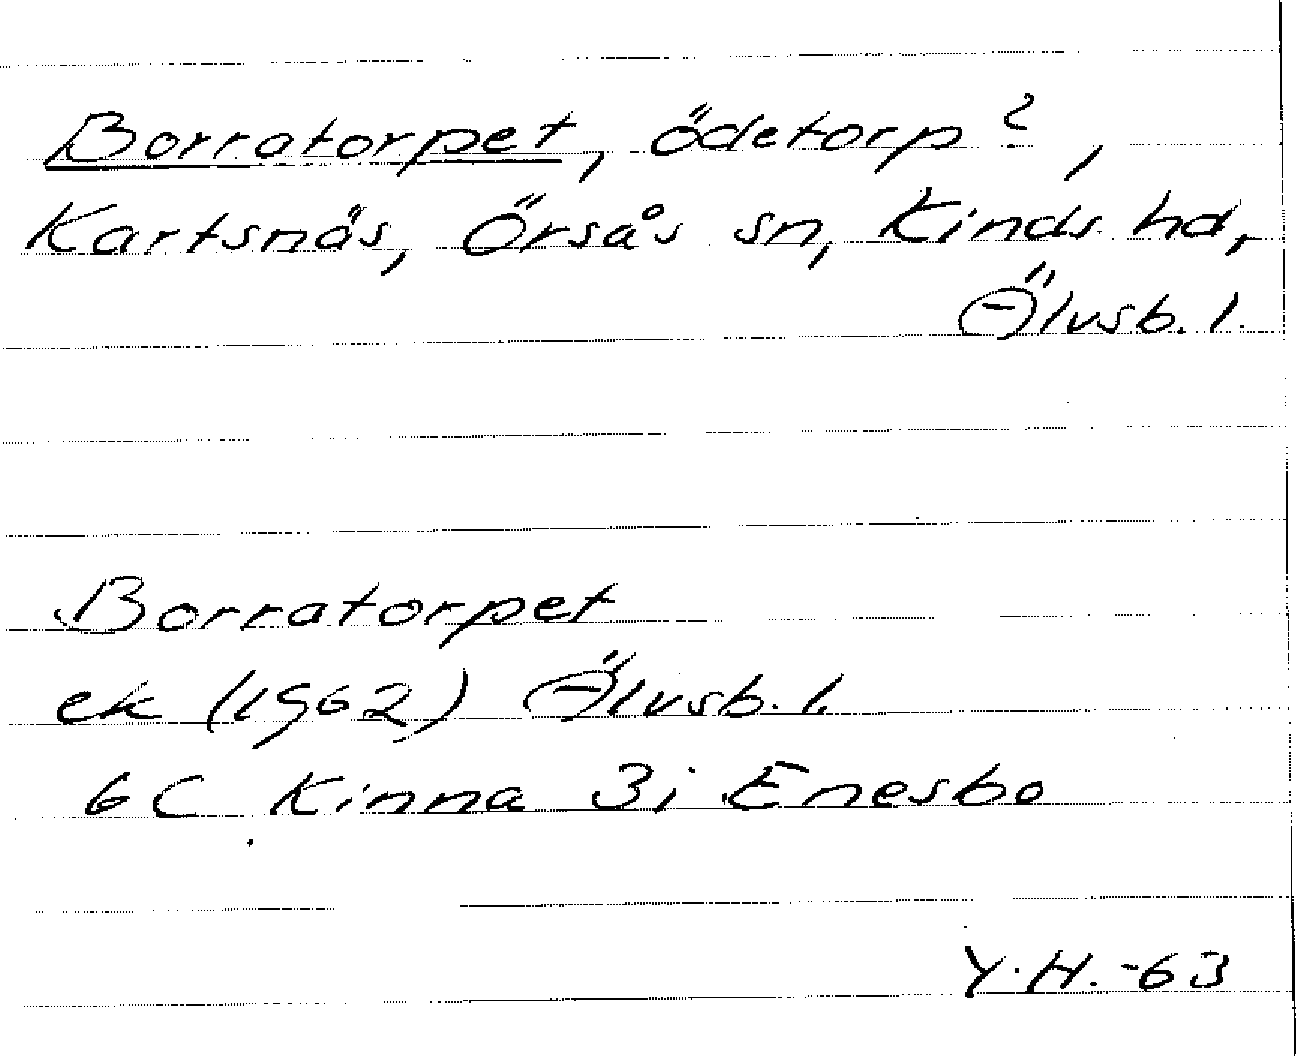 Borratorpet, ödetorp?,
Kartsnäs, Örsås sn, Kinds hd,
Älvsb. l.
Borratorpet
ek (1962) Älvsb. l.
6C Kinna 3j Enesbo
Y.H.-63